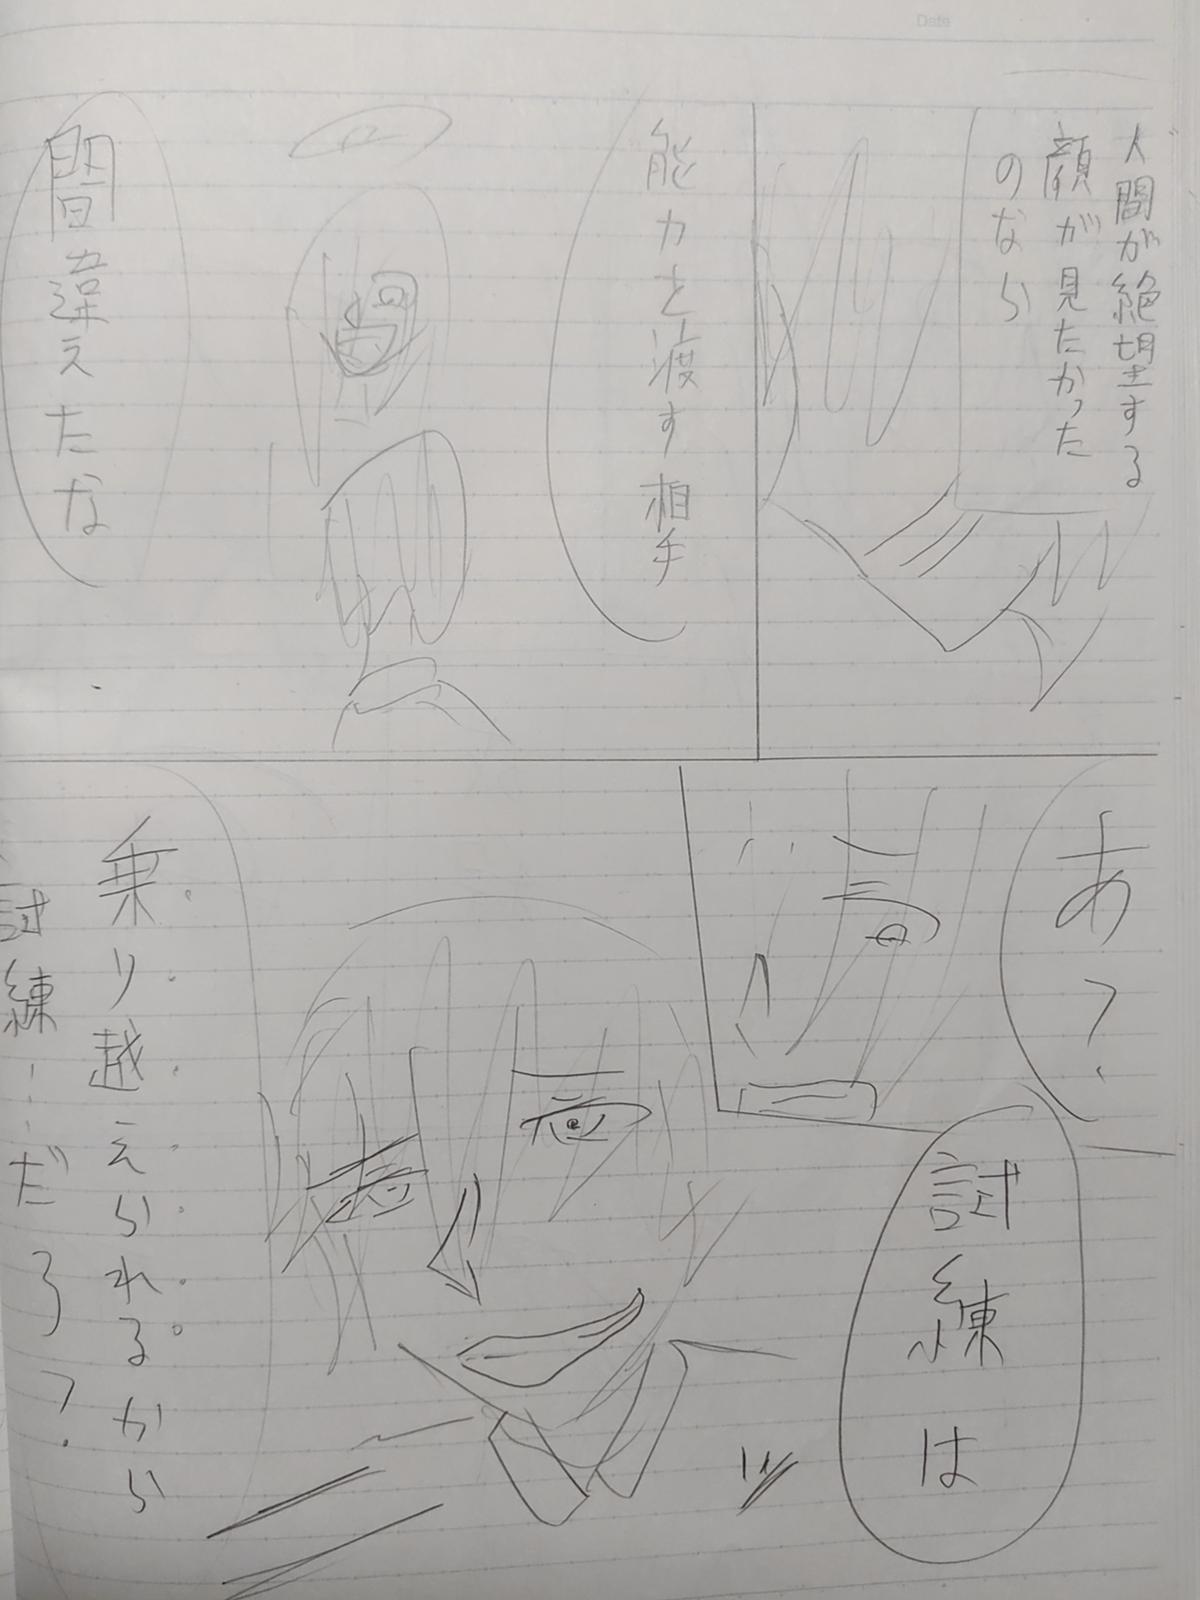 Date
人間が絶望する
顔が見たかった
のなら
能力を渡す相手
間違えたな
あ?
試練は
乗り越えられるから
試練……だろ?